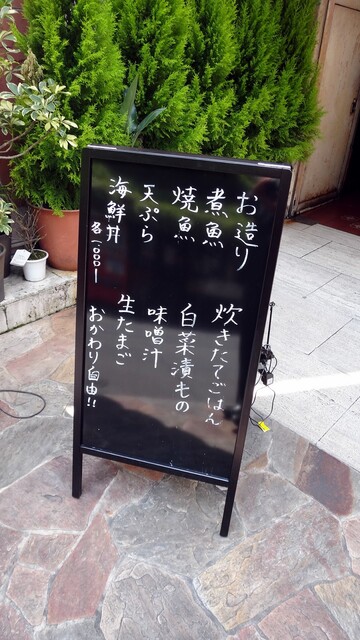 お造り
煮魚
焼魚
天ぷら
海鮮丼
各一〇〇〇ー
炊きたてごはん
白菜漬もの
味噌汁
生たまご
おかわり自由!!